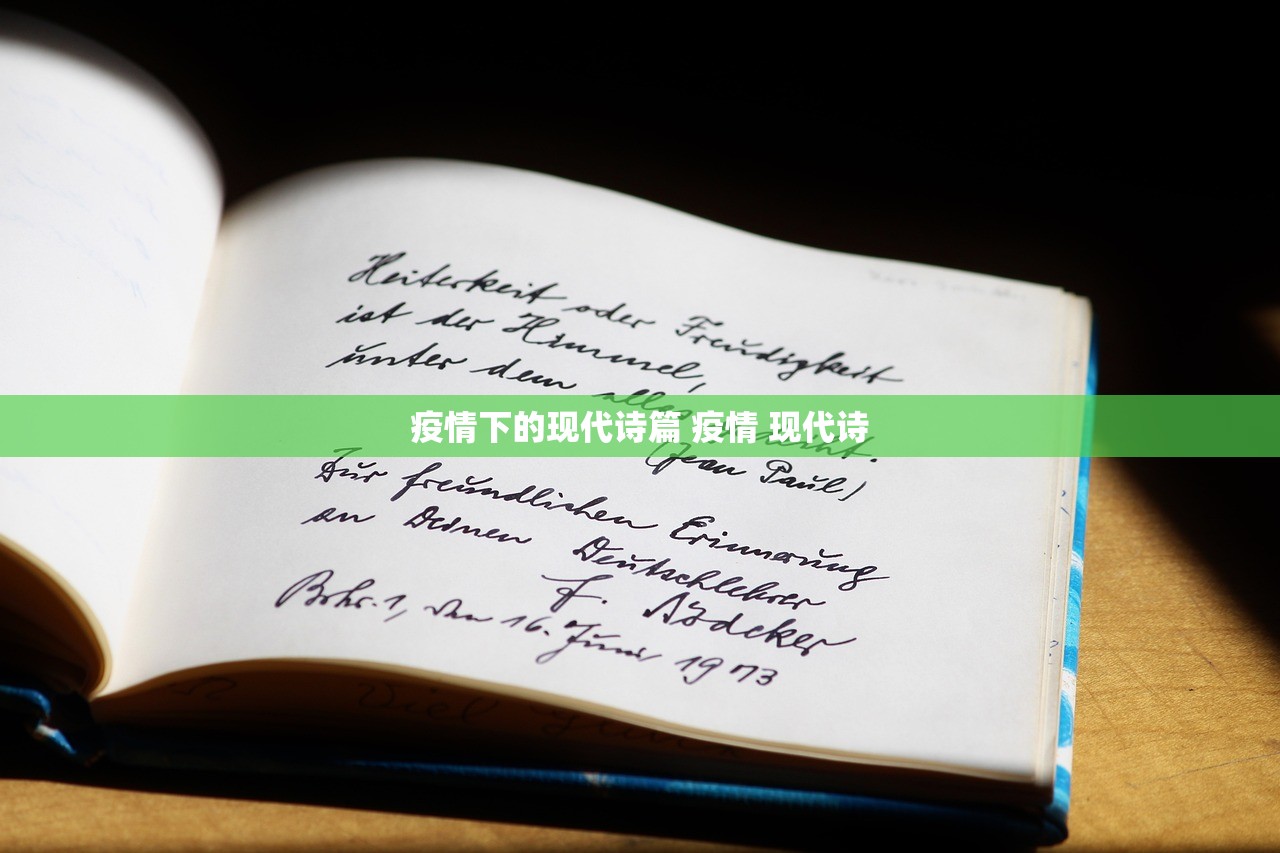 Heiterkeit oder Freudigkeit
ist der Himmel,
unter dem alles
疫情下的现代诗篇 疫情 现代诗
(Jean Paul)
Zur freundlichen Erinnerung
an Deinen Deutschlehrer
F.
den 16. Juni 1973
Viel